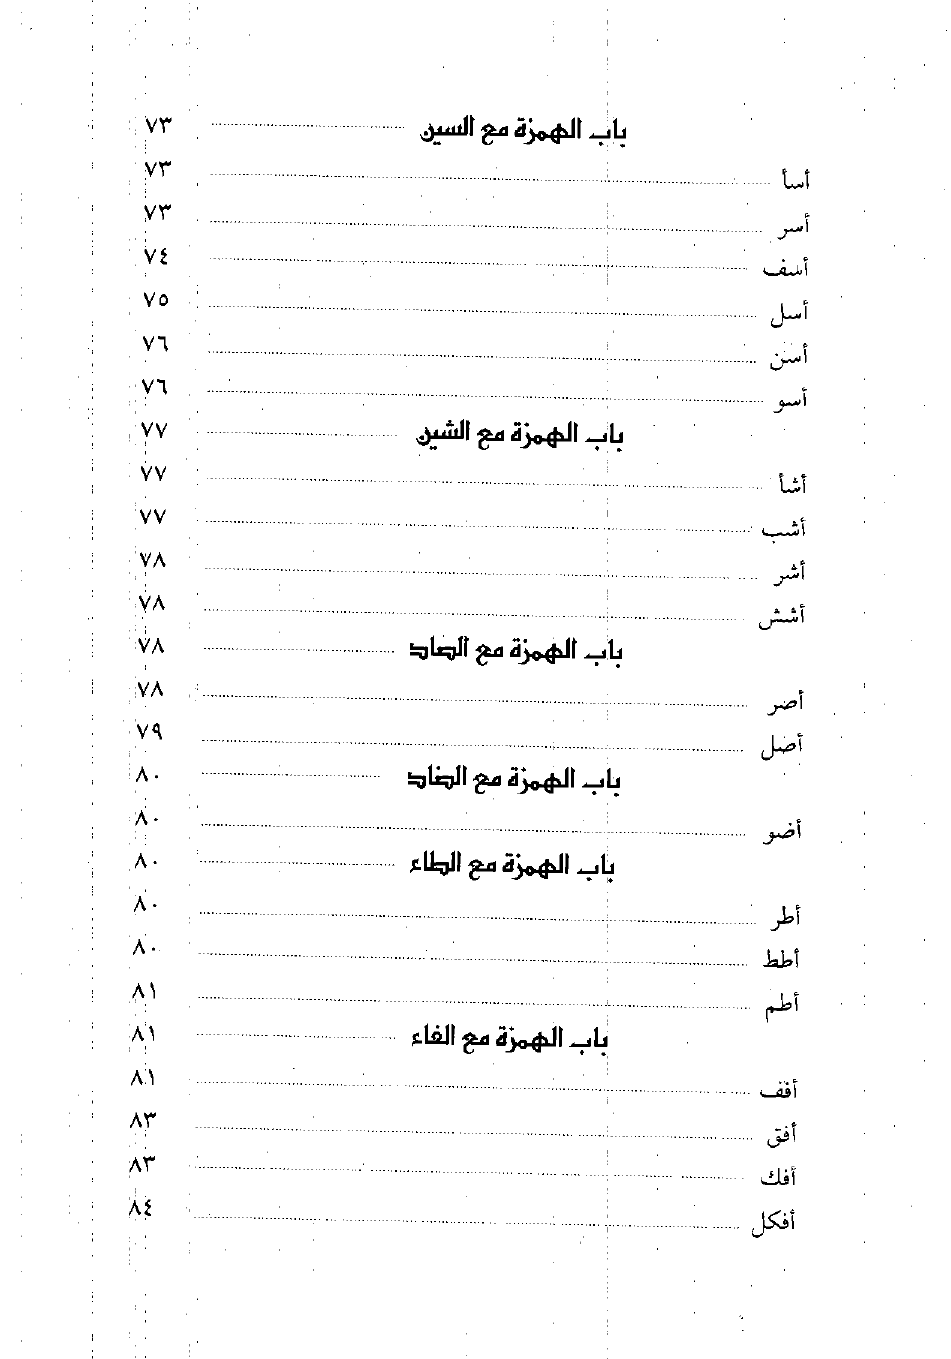 باب الهمزة مع السين ٧٣
أسأ ٧٣
أسر ٧٣
أسف ٧٤
أسل ٧٥
أسن ٧٦
أسو ٧٦
باب الهمزة مع الشين ٧٧
أشأ ٧٧
أشب ٧٧
أشر ٧٨
أشش ٧٨
باب الهمزة مع الصاد ٧٨
أصر ٧٨
أصل ٧٩
باب الهمزة مع الضاد ٨٠
أضو ٨٠
باب الهمزة مع الطاء ٨٠
أطر ٨٠
أطط ٨٠
أطم ٨١
باب الهمزة مع الفاء ٨١
أفف ٨١
أفق ٨٣
أفك ٨٣
أفكل ٨٤